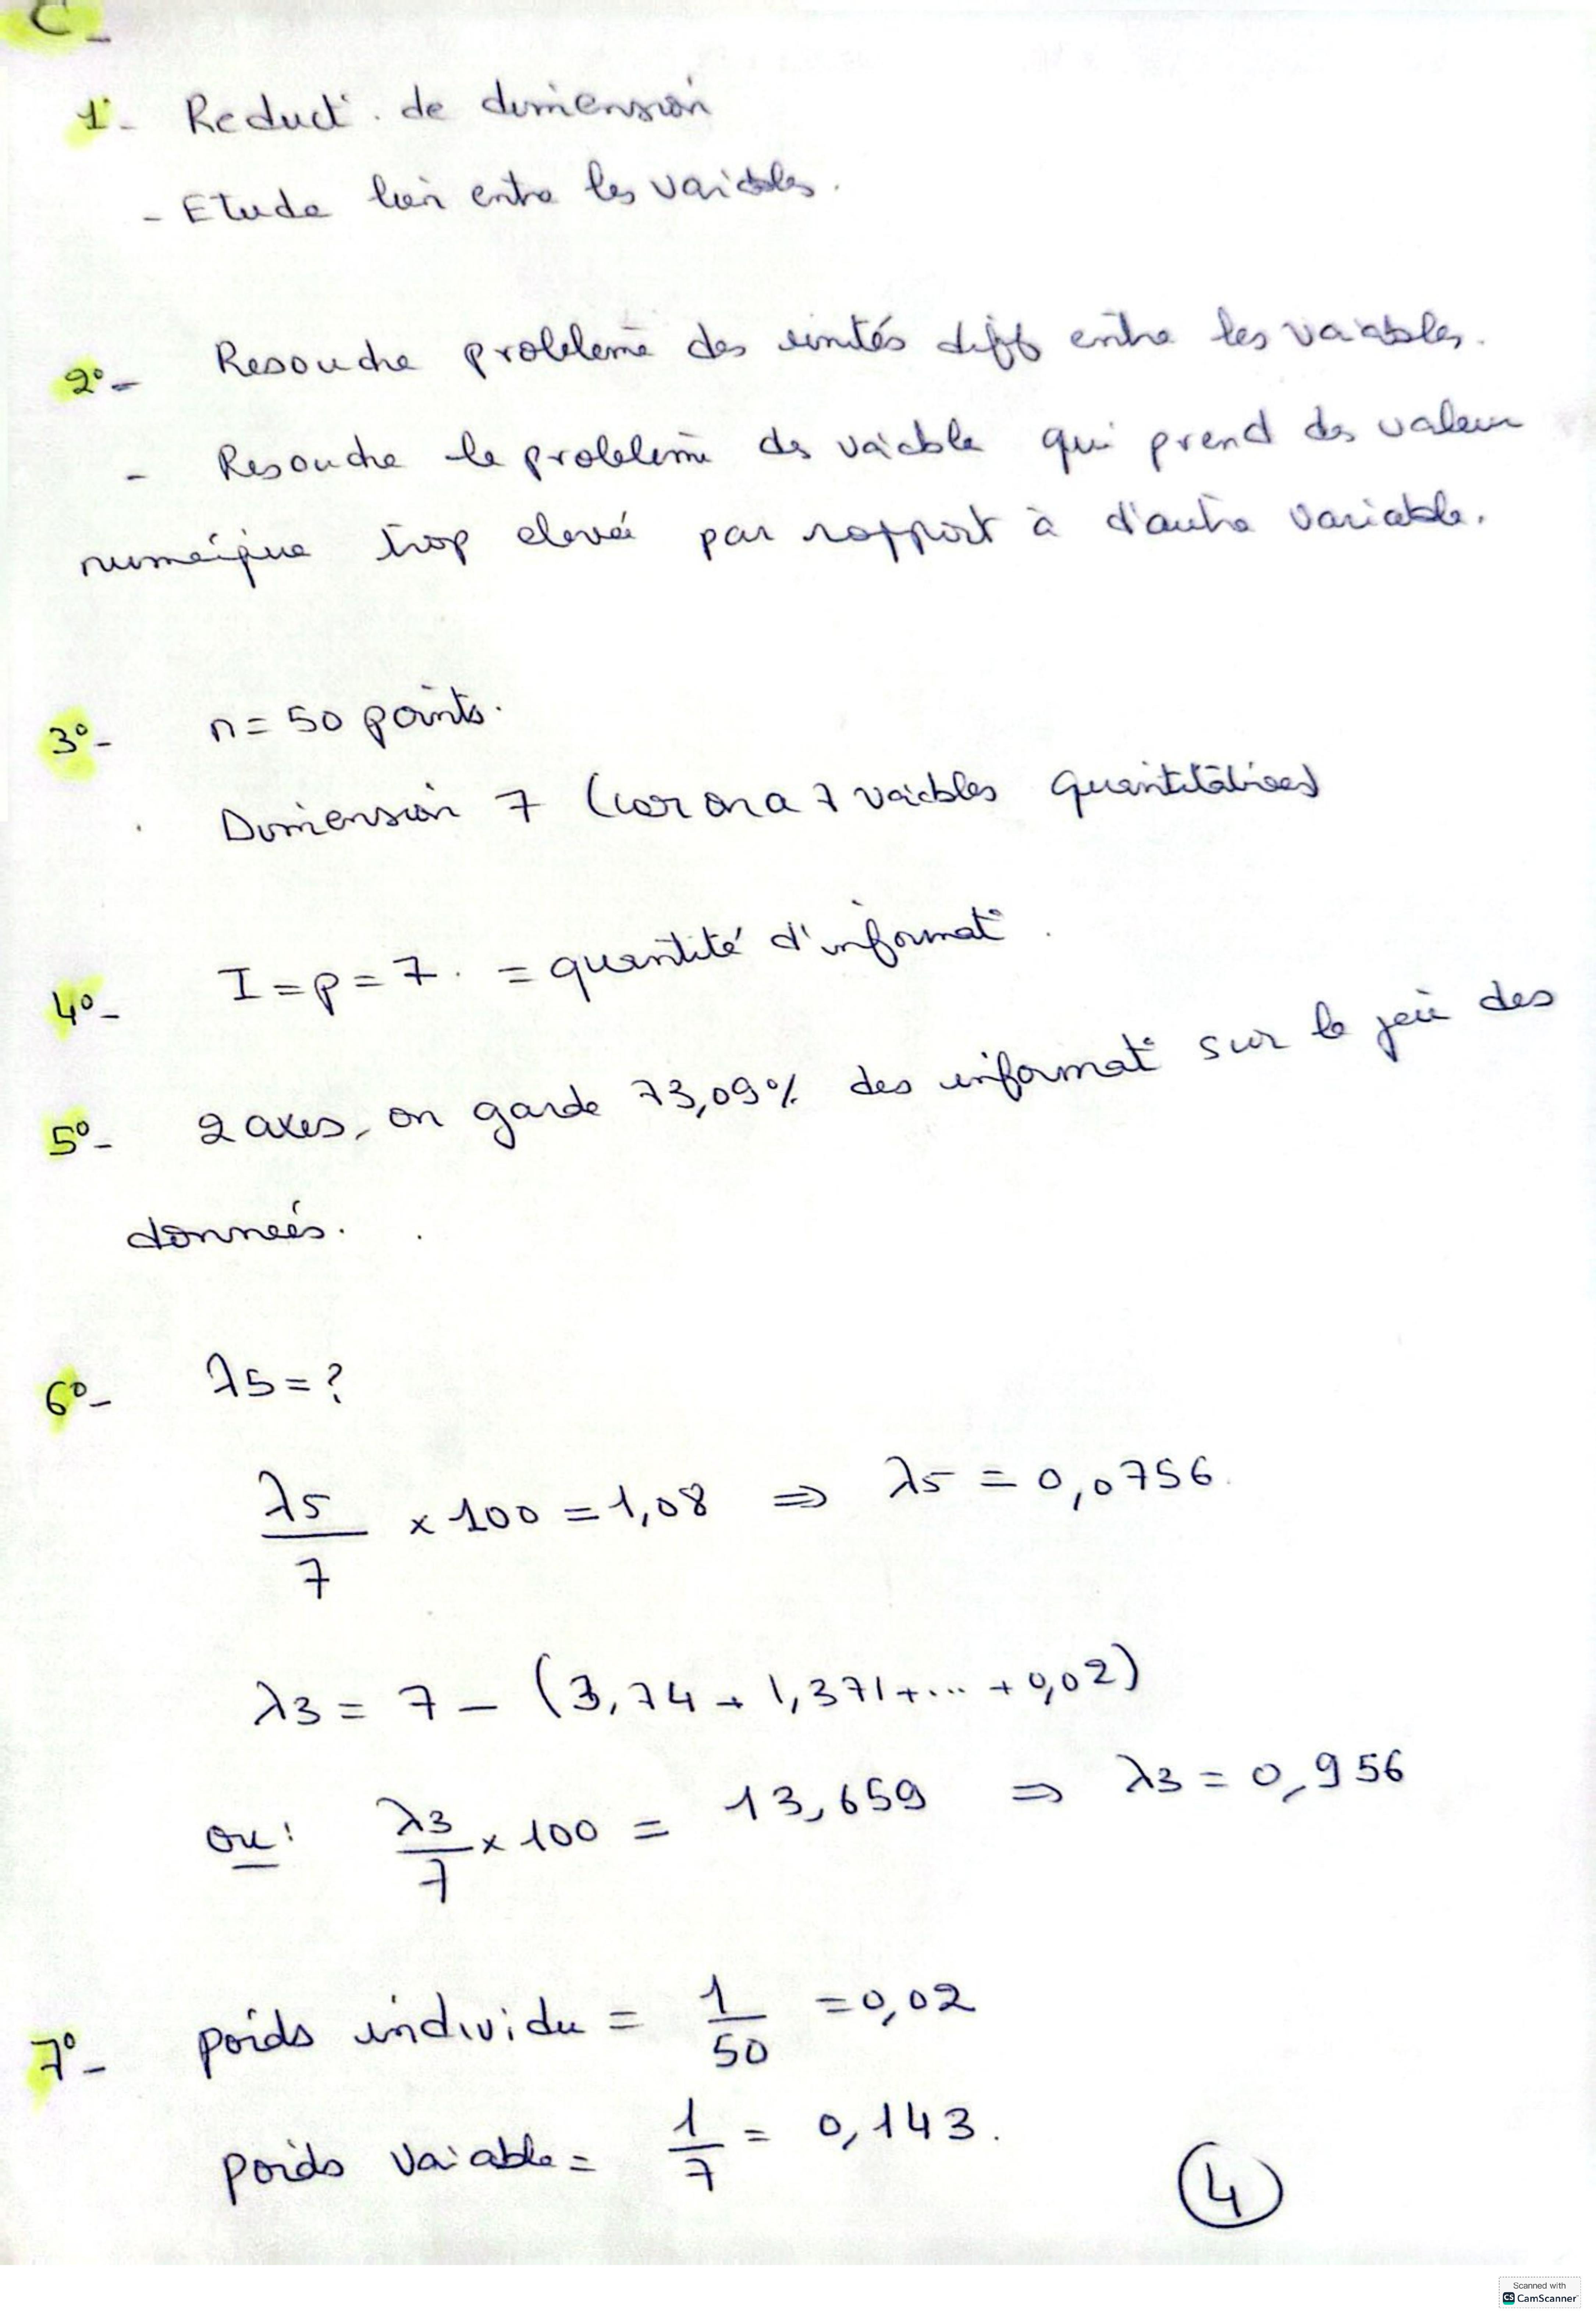 C_
1°- Reduct°. de dimension
- Etude lien entre les variables.
2°- Resoudre problème des unités diff entre les variables.
- Resoudre le problème des variable qui prend des valeur
numérique trop elevé par rapport à d'autre variable.
3°- n = 50 points.
Dimension 7 (car on a 7 variables quantitatives)
4°- I = p = 7. = quantité d'informat°.
5°- 2 axes, on garde 73,09% des informat° sur le jeu des
données.
6°- λ5 = ?
λ5/7 × 100 = 1,08 ⇒ λ5 = 0,0756.
λ3 = 7 - (3,74 + 1,371 + ... + 0,02)
ou: λ3/7 × 100 = 13,659 ⇒ λ3 = 0,956
7°- poids individu = 1/50 = 0,02
poids variable = 1/7 = 0,143.
4
Scanned with
CS CamScanner